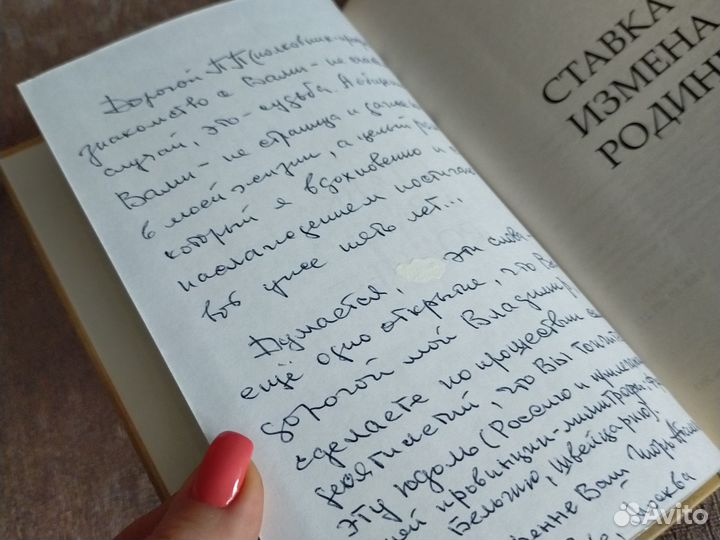 Дорогой ПП (полковник
знакомство с Вами – не
случай, это – судьба. А
Вами – не страница и
в моей жизни, а целый
который я вдохновенно и
наслаждением постигаю
вот уже пять лет...
Думается, эти слова
ещё одно открытие, что
дорогой мой Владимир
сделаете по прошествии
десятилетий, что Вы
эту юдоль (Россию и
ей провинции
Бельгию, Швейцарию).
Ваш
СТАВКА
ИЗМЕНА
РОДИН
Avito